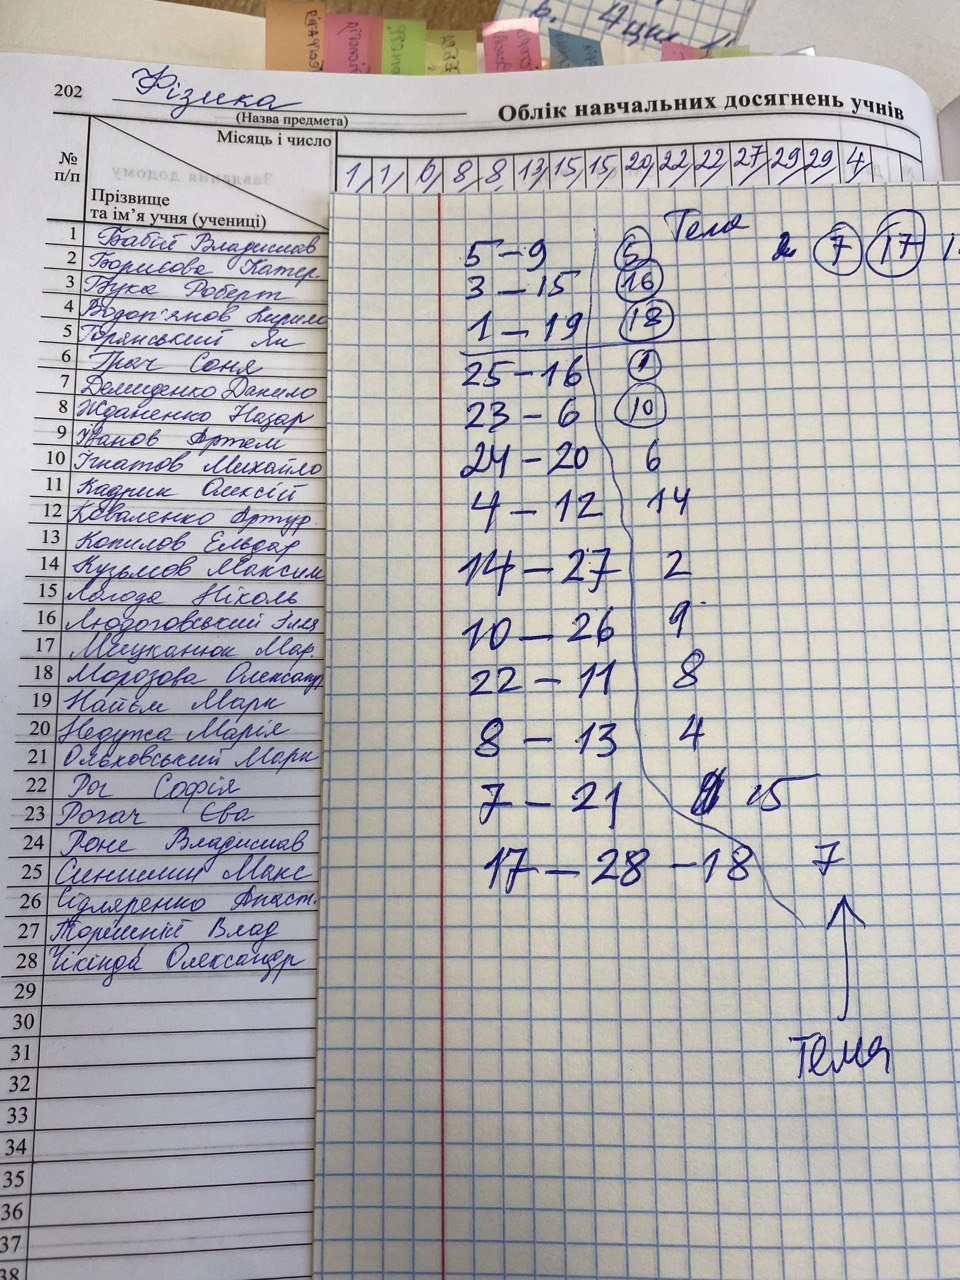 202 Фізика
(Назва предмета)
Облік навчальних досягнень учнів
№ п/п
Місяць і число
Прізвище та ім’я учня (учениці)
1 1 6 8 8 13 15 15 20 22 22 27 29 29 4
1 Бабій Владислав
2 Борисова Катер.
3 Бука Роберт
4 Водоп'янов Кирило
5 Горянський Ян
6 Грач Соня
7 Демиденко Данило
8 Жданенко Назар
9 Іванов Артем
10 Ігнатов Михайло
11 Кадрик Олексій
12 Коваленко Артур
13 Копилов Ельдар
14 Кузьмов Максим
15 Логода Ніколь
16 Людоговський Ілля
17 Мицканюк Мар.
18 Морозова Олександр
19 Найєм Марк
20 Недужа Марія
21 Ольховський Марк
22 Рог Софія
23 Рогач Єва
24 Роне Владислав
25 Синишин Макс
26 Сідляренко Анаст.
27 Торішній Влад
28 Чікінда Олександр
29
30
31
32
33
34
35
36
37
38
Тема
7 17
5 – 9 5
3 – 15 16
1 – 19 18
25 – 16 1
23 – 6 10
24 – 20 6
4 – 12 14
14 – 27 2
10 – 26 9
22 – 11 8
8 – 13 4
7 – 21 15
17 – 28 – 18 7
Тема